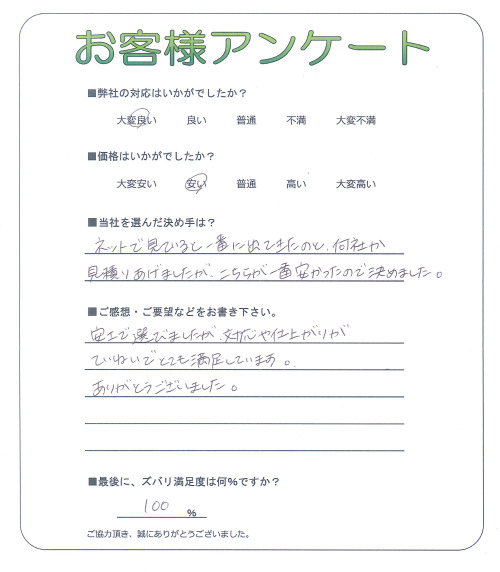 お客様アンケート
■弊社の対応はいかがでしたか？
大変良い 良い 普通 不満 大変不満
■価格はいかがでしたか？
大変安い 安い 普通 高い 大変高い
■当社を選んだ決め手は？
ネットで見ていると一番に出てきたのと、何社か
見積りあげましたが、こちらが一番安かったので決めました。
■ご感想・ご要望などをお書き下さい。
安さで選びましたが、対応や仕上がりが
ていねいでとても満足しています。
ありがとうございました。
■最後に、ズバリ満足度は何%ですか？
100 %
ご協力頂き、誠にありがとうございました。